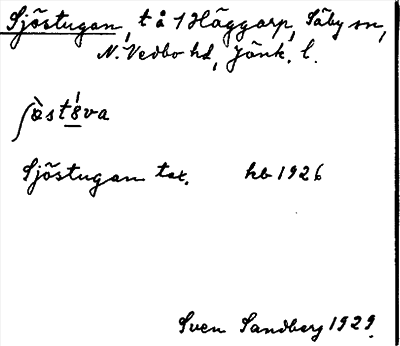 Sjöstugan, t å 1 Häggarp, Säby sn,
N. Vedbo hd, Jönk. l.
Sjöstugan tox. hb 1926
Sven Sandberg 1929.